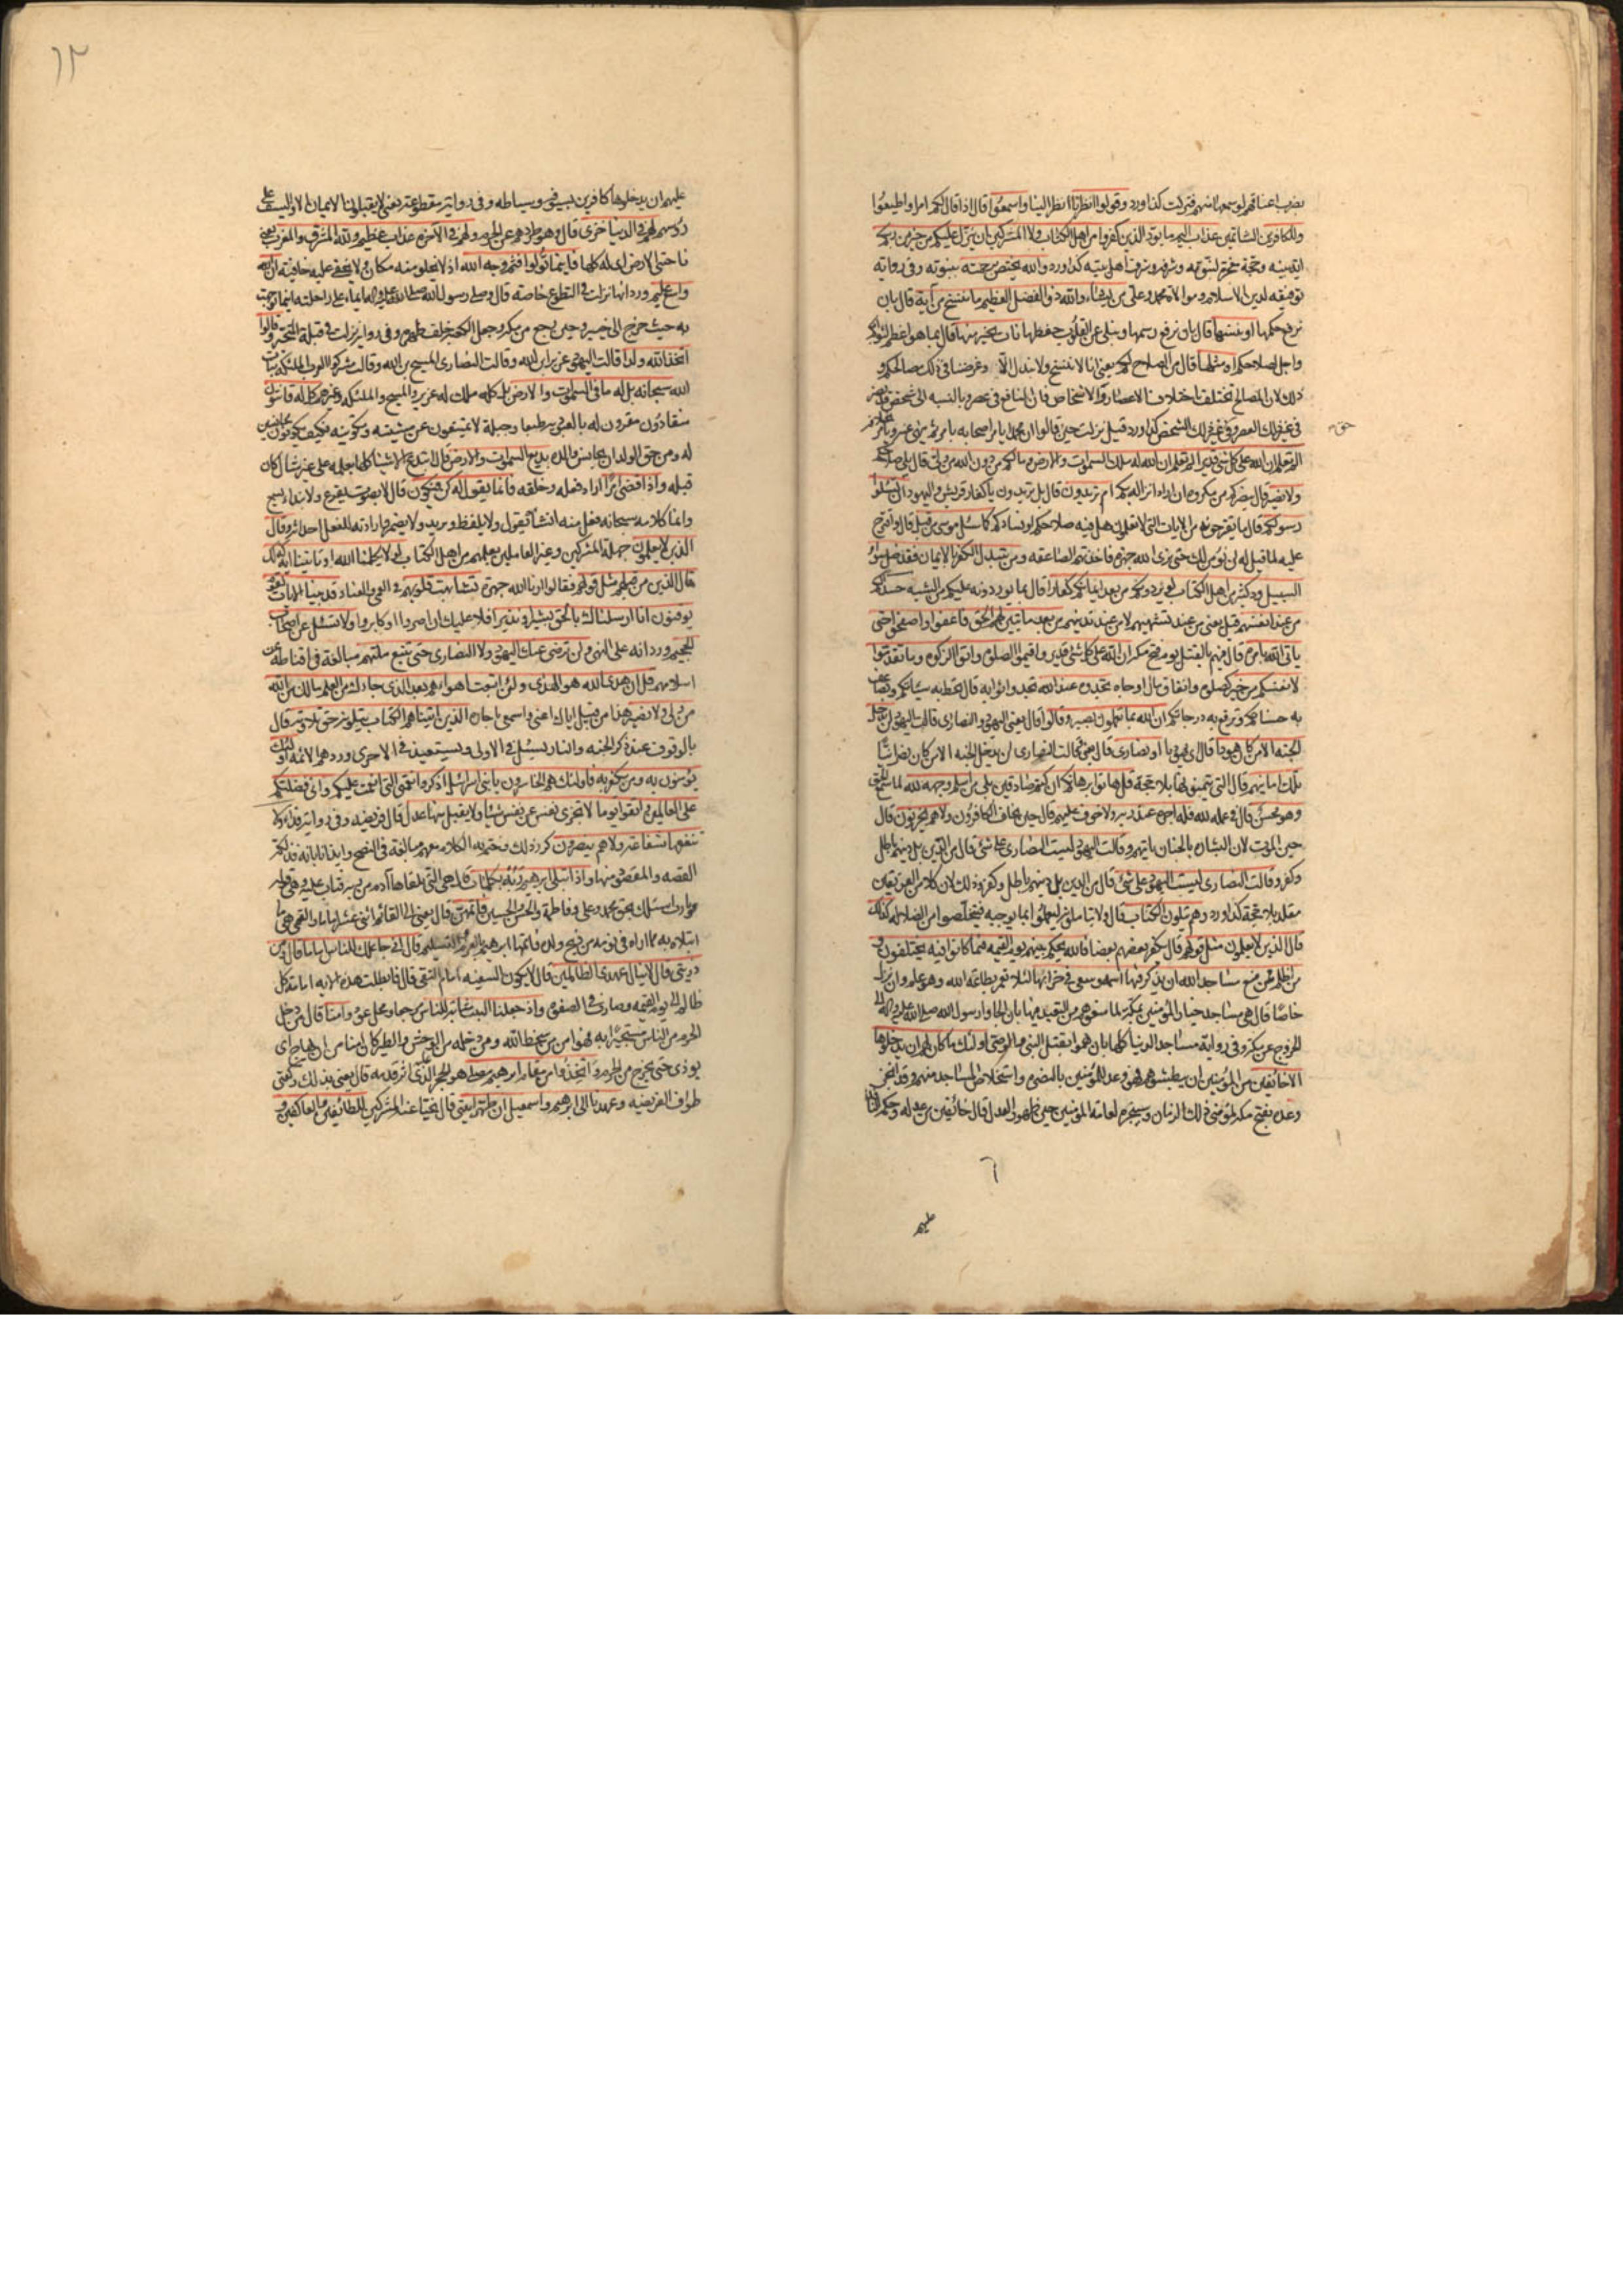 بضرب اعناقهم لو سمعها منهم فتركت كذا ورد وقولوا انظرنا انظر الينا واسمعوا قال اذا قال لكم امرا واطيعوا
وللكافرين الشاتمين عذاب اليم ما يود الذين كفروا من اهل الكتاب ولا المشركين ان ينزل عليكم من خير من ربكم
اية بينة وحجة معجزة لنبوته وشرفه وشرف اهل بيته كذا ورد والله يختص برحمته بنبوته وفي رواية
توفيقه لدين الاسلام وموالاة محمد وعلي من يشاء والله ذو الفضل العظيم ما ننسخ من آية قال بان
نرفع حكمها او ننسها قال بان نرفع رسمها ونبلى عن القلوب حفظها نات بخير منها قال بما هو اعظم لثوابكم
واجل لصلاحكم او مثلها قال من الصلاح لكم يعني انا لا ننسخ ولا نبدل الا وغرضنا في ذلك مصالحكم و
ذلك لان المصالح تختلف باختلاف الاعصار والاشخاص فان النافع في عصر وبالنسبة الى شخص قد يضر
في غير ذلك العصر وفي غير ذلك الشخص كذا ورد قيل نزلت حين قالوا ان محمدا يامر اصحابه بامر ثم ينهى عنه ويامر بخلافه
الم تعلم ان الله على كل شئ قدير الم تعلم ان الله له ملك السموات والارض وما لكم من دون الله من ولي قال يلي صلاحكم
ولا نصير قال ينصركم من مكروه ان اراد انزاله بكم ام تريدون قال بل تريدون يا كفار قريش واليهود ان تسئلوا
رسولكم قال ما تقترحونه من الايات التي لا تعلمون هل فيه صلاحكم او فسادكم كما سئل موسى من قبل قال واقترح
عليه لما قيل له لن نؤمن لك حتى نرى الله جهرة فاخذتهم الصاعقة ومن يتبدل الكفر بالايمان فقد ضل سواء
السبيل ود كثير من اهل الكتاب لو يردونكم من بعد ايمانكم كفارا قال بما يوردونه عليكم من الشبه حسدا لكم
من عند انفسهم قيل يعني من عند تشهيهم لا من عند تدينهم من بعد ما تبين لهم الحق فاعفوا واصفحوا حتى
ياتي الله بامره قال فيهم بالقتل يوم فتح مكة ان الله على كل شئ قدير واقيموا الصلوة واتوا الزكوة وما تقدموا
لانفسكم من خير كصلوة وانفاق مال او جاه تجدوه عند الله تجدوا ثوابه قال تحط به سيئاتكم وتضاعف
به حسناتكم وترفع به درجاتكم ان الله بما تعملون بصير وقالوا قال يعني اليهود والنصارى قالت اليهود لن يدخل
الجنة الا من كان هودا قال اى يهوديا او نصارى قال يعني وقالت النصارى لن يدخل الجنة الا من كان نصرانيا
تلك امانيهم قال التي يتمنونها بلا حجة قل هاتوا برهانكم ان كنتم صادقين بلى من اسلم وجهه لله لما سمع الحق
وهو محسن قال في عمله لله فله اجره عند ربه ولا خوف عليهم قال حين يخاف الكافرون ولا هم يحزنون قال
حين الموت لان البشارة بالجنان ياتيهم وقالت اليهود ليست النصارى على شئ قال من الدين بل دينهم باطل
وكفر وقالت النصارى ليست اليهود على شئ قال من الدين بل دينهم باطل وكفر وذلك لان كلا من الفريقين
مقلد بلا حجة كذا ورد وهم يتلون الكتاب قال ولا يتاملونه ليعملوا بما يوجبه فيتخلصوا من الضلالة كذلك
قال الذين لا يعلمون مثل قولهم قال يكفر بعضهم بعضا فالله يحكم بينهم يوم القيمة فيما كانوا فيه يختلفون و
من اظلم ممن منع مساجد الله ان يذكر فيها اسمه وسعى في خرابها لئلا تعمر بطاعة الله وهو عام وان نزل
خاصا قال هي مساجد خيار المؤمنين بمكة لما منعوهم من التعبد فيها بان الجاوا رسول الله صلى الله عليه واله الى
الخروج عن مكة وفي رواية مساجد الدنيا كلها بان هموا بقتل النبي والوصي اولئك ما كان لهم ان يدخلوها
الا خائفين من المؤمنين ان يبطشوا بهم فهو وعد للمؤمنين بالنصرة واستخلاص المساجد منهم وقد انجز
وعده بفتح مكة لمؤمني ذلك الزمان وسينجزه لعامة المؤمنين حين ظهور العدل قال خائفين من عدله وحكمه النافذ
عليهم
١٢
عليهم ان يدخلوها كافرين بسيفه وسياطه وفي رواية يعني لا يقبلون الايمان الا والسيف على
رؤسهم لهم في الدنيا خزى قال وهو طردهم عن الحرم ولهم في الاخرة عذاب عظيم ولله المشرق والمغرب يعني
ناحيتى الارض اى له كلها فاينما تولوا فثم وجه الله اذ لا يخلو منه مكان ولا يخفى عليه خافية ان الله
واسع عليم ورد انها نزلت في التطوع خاصة قال وصلى رسول الله صلى الله عليه واله ايماء على راحلته اينما توجهت
به حيث خرج الى خيبر وحين رجع من مكة وجعل الكعبة خلف ظهره وفي رواية نزلت في قبلة المتحير وقالوا
اتخذ الله ولدا قالت اليهود عزير ابن الله وقالت النصارى المسيح بن الله وقالت مشركوا العرب الملئكة بنات
الله سبحانه بل له ما في السموات والارض بل كله ملك له عزير والمسيح والملئكة وغيرهم كل له قانتون
منقادون مقرون له بالعبودية طبعا وجبلة لا يمتنعون عن مشيته وتكوينه فكيف يكونون مجانسين
له ومن حق الولد ان يجانس والده بديع السموات والارض قال ابتدع الاشياء كلها بعلمه على غير مثال كان
قبله واذا قضى امرا اراد فعله وخلقه فانما يقول له كن فيكون قال لا بصوت يقرع ولا بنداء يسمع
وانما كلامه سبحانه فعل منه انشأه يقول ولا يلفظ ويريد ولا يضمر وارادته للفعل احداثه وقال
الذين لا يعلمون جهلة المشركين وغير العاملين بعلمهم من اهل الكتاب لولا يكلمنا الله او تاتينا اية كذلك
قال الذين من قبلهم مثل قولهم فقالوا ارنا الله جهرة تشابهت قلوبهم في العمى والعناد قد بينا الايات لقوم
يوقنون انا ارسلناك بالحق بشيرا ونذيرا فلا عليك ان اصروا او كابروا ولا تسئل عن اصحاب
الجحيم ورد انه على النهى ولن ترضى عنك اليهود ولا النصارى حتى تتبع ملتهم مبالغة في اقناطه عن
اسلامهم قل ان هدى الله هو الهدى ولئن اتبعت اهواءهم بعد الذى جاءك من العلم ما لك من الله
من ولي ولا نصير هذا من قبيل اياك اعني واسمعى يا جاره الذين اتيناهم الكتاب يتلونه حق تلاوته قال
بالوقوف عند ذكر الجنة والنار يسئل في الاولى ويستعيذ في الاخرى وورد هم الائمة اولئك
يؤمنون به ومن يكفر به فاولئك هم الخاسرون يا بنى اسرائيل اذكروا نعمتى التى انعمت عليكم واني فضلتكم
على العالمين واتقوا يوما لا تجزى نفس عن نفس شيئا ولا يقبل منها عدل قال فريضة وفي رواية فداء ولا
تنفعها شفاعة ولا هم ينصرون كرر ذلك وختم به الكلام معهم مبالغة في النصح وايذانا بانه فذلكة
القصة والمقصود منها واذ ابتلى ابرهيم ربه بكلمات قال هي التي تلقاها آدم من ربه فتاب عليه وهى قوله
يا رب اسئلك بحق محمد وعلى وفاطمة والحسن والحسين فاتمهن قال يعني الى القائم اثنى عشر اماما والقمى هي ما
ابتلاه به مما اراه في نومه من ذبح ولده فاتمها ابرهيم بالعزم والتسليم قال اني جاعلك للناس اماما قال ومن
ذريتى قال لا ينال عهدى الظالمين قال لا يكون السفيه امام التقى قال فابطلت هذه الاية امامة كل
ظالم الى يوم القيمة وصارت في الصفوة واذ جعلنا البيت مثابة للناس مرجعا ومحل عود وامنا قال من دخل
الحرم من الناس مستجيرا به فهو امن من سخط الله ومن دخله من الوحش والطير كان امنا من ان يهاج او
يوذى حتى يخرج من الحرم واتخذوا من مقام ابرهيم مصلى هو الحجر الذى اثر قدمه قال يعني بذلك ركعتي
طواف الفريضة وعهدنا الى ابرهيم واسمعيل ان طهرا بيتى قال نحيا عنه المشركين للطائفين والعاكفين و